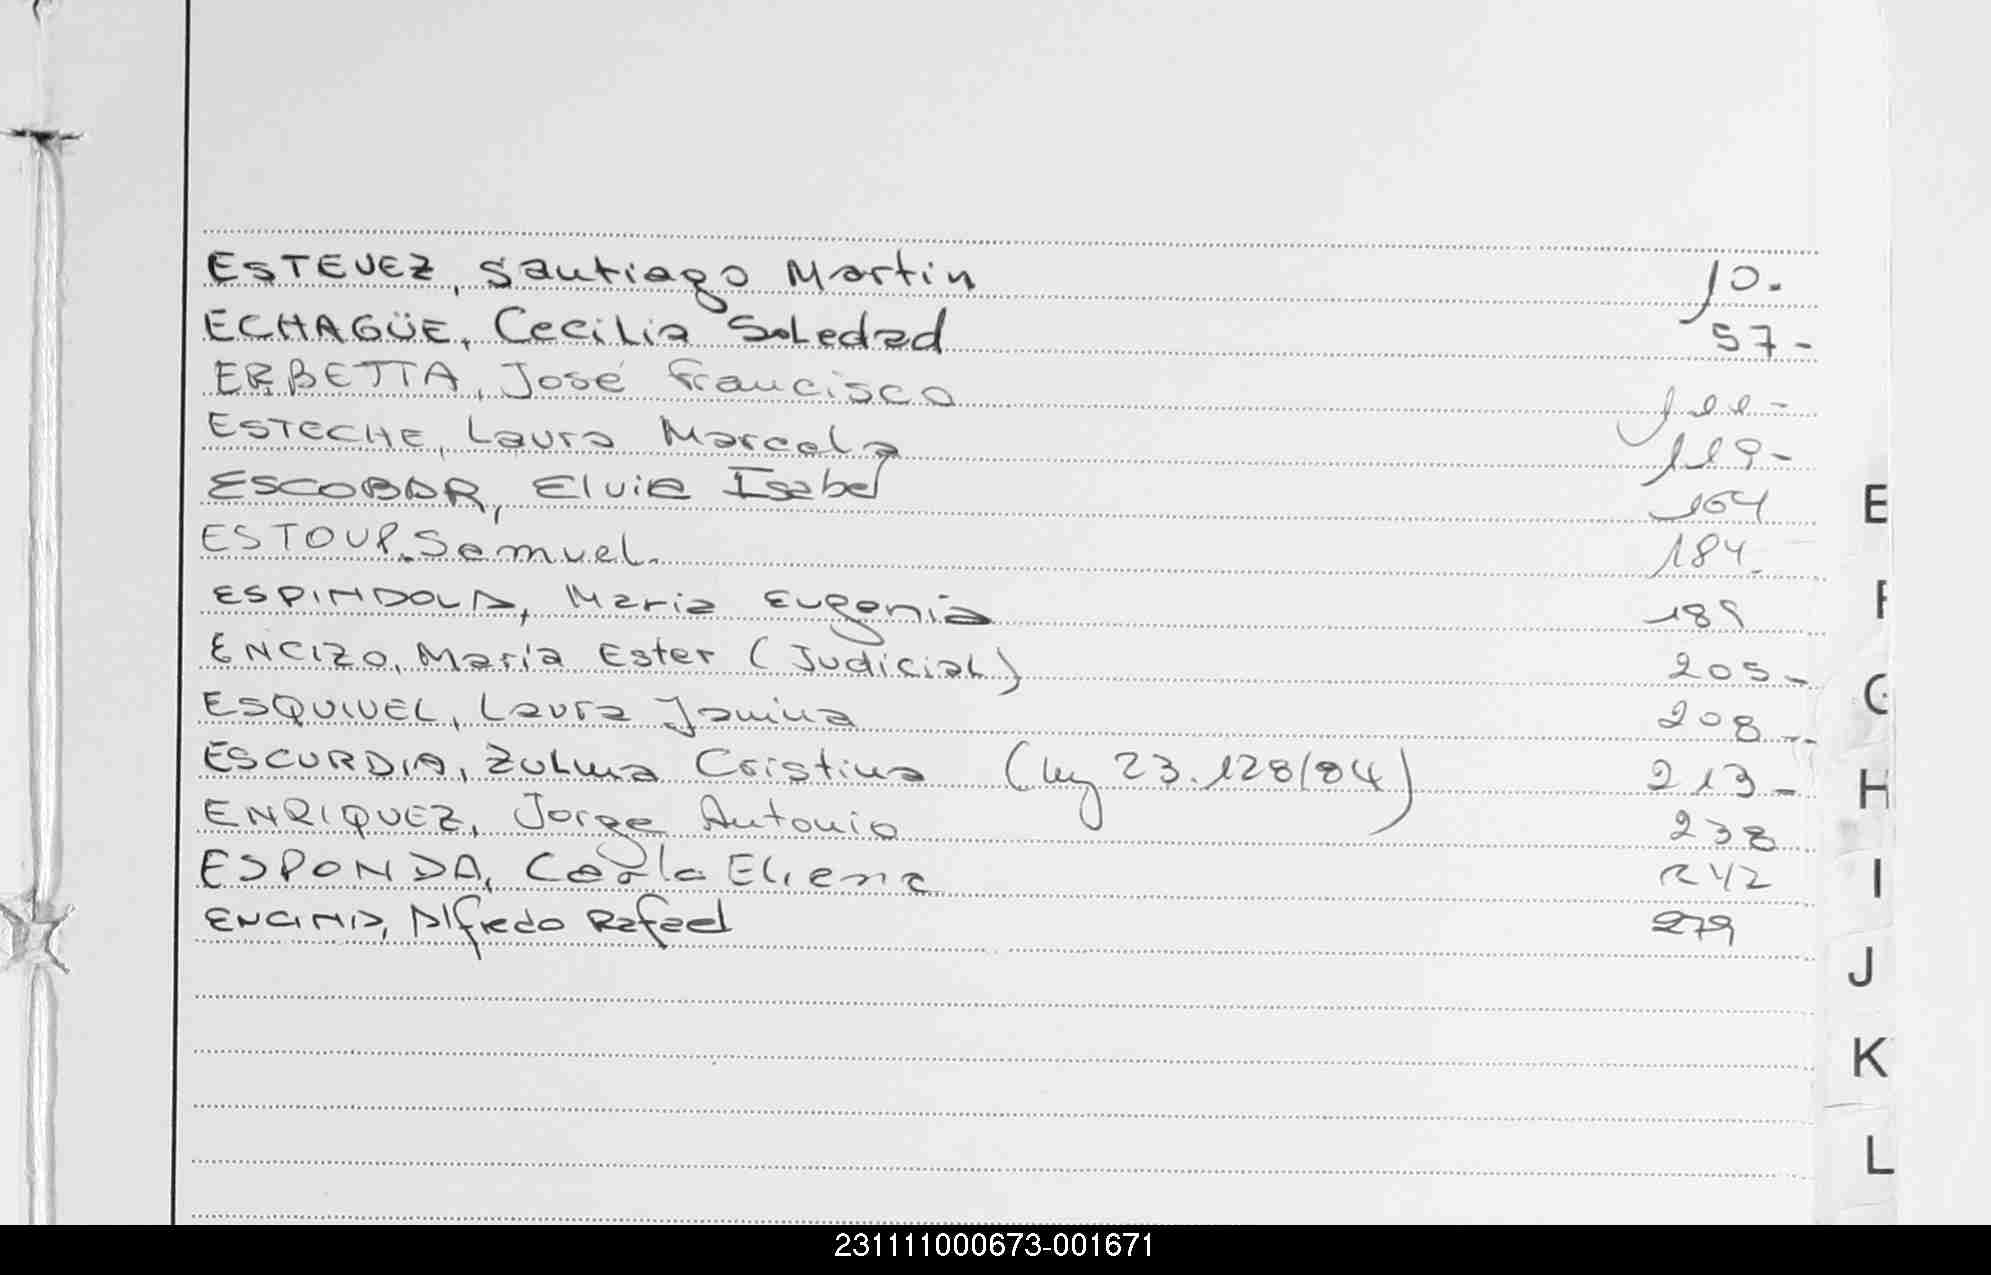 ESTEVEZ, Santiago Martin 10.-
ECHAGÜE, Cecilia Soledad 57-
ERBETTA, José Francisco 100-
ESTECHE, Laura Marcela 119-
ESCOBAR, Elvia Isabel 164
ESTOUP, Samuel. 184-
ESPINDOLA, Maria Eugenia 189
ENCIZO, María Ester (Judicial) 205-
ESQUIVEL, Laura Janina 208--
ESCURDIA, Zulma Cristina (ley 23.128/84) 213-
ENRIQUEZ, Jorge Antonio 238
ESPONDA, Carla Eliana 242
ENCINA, Alfredo Rafael 279
E
F
G
H
I
J
K
L
231111000673-001671